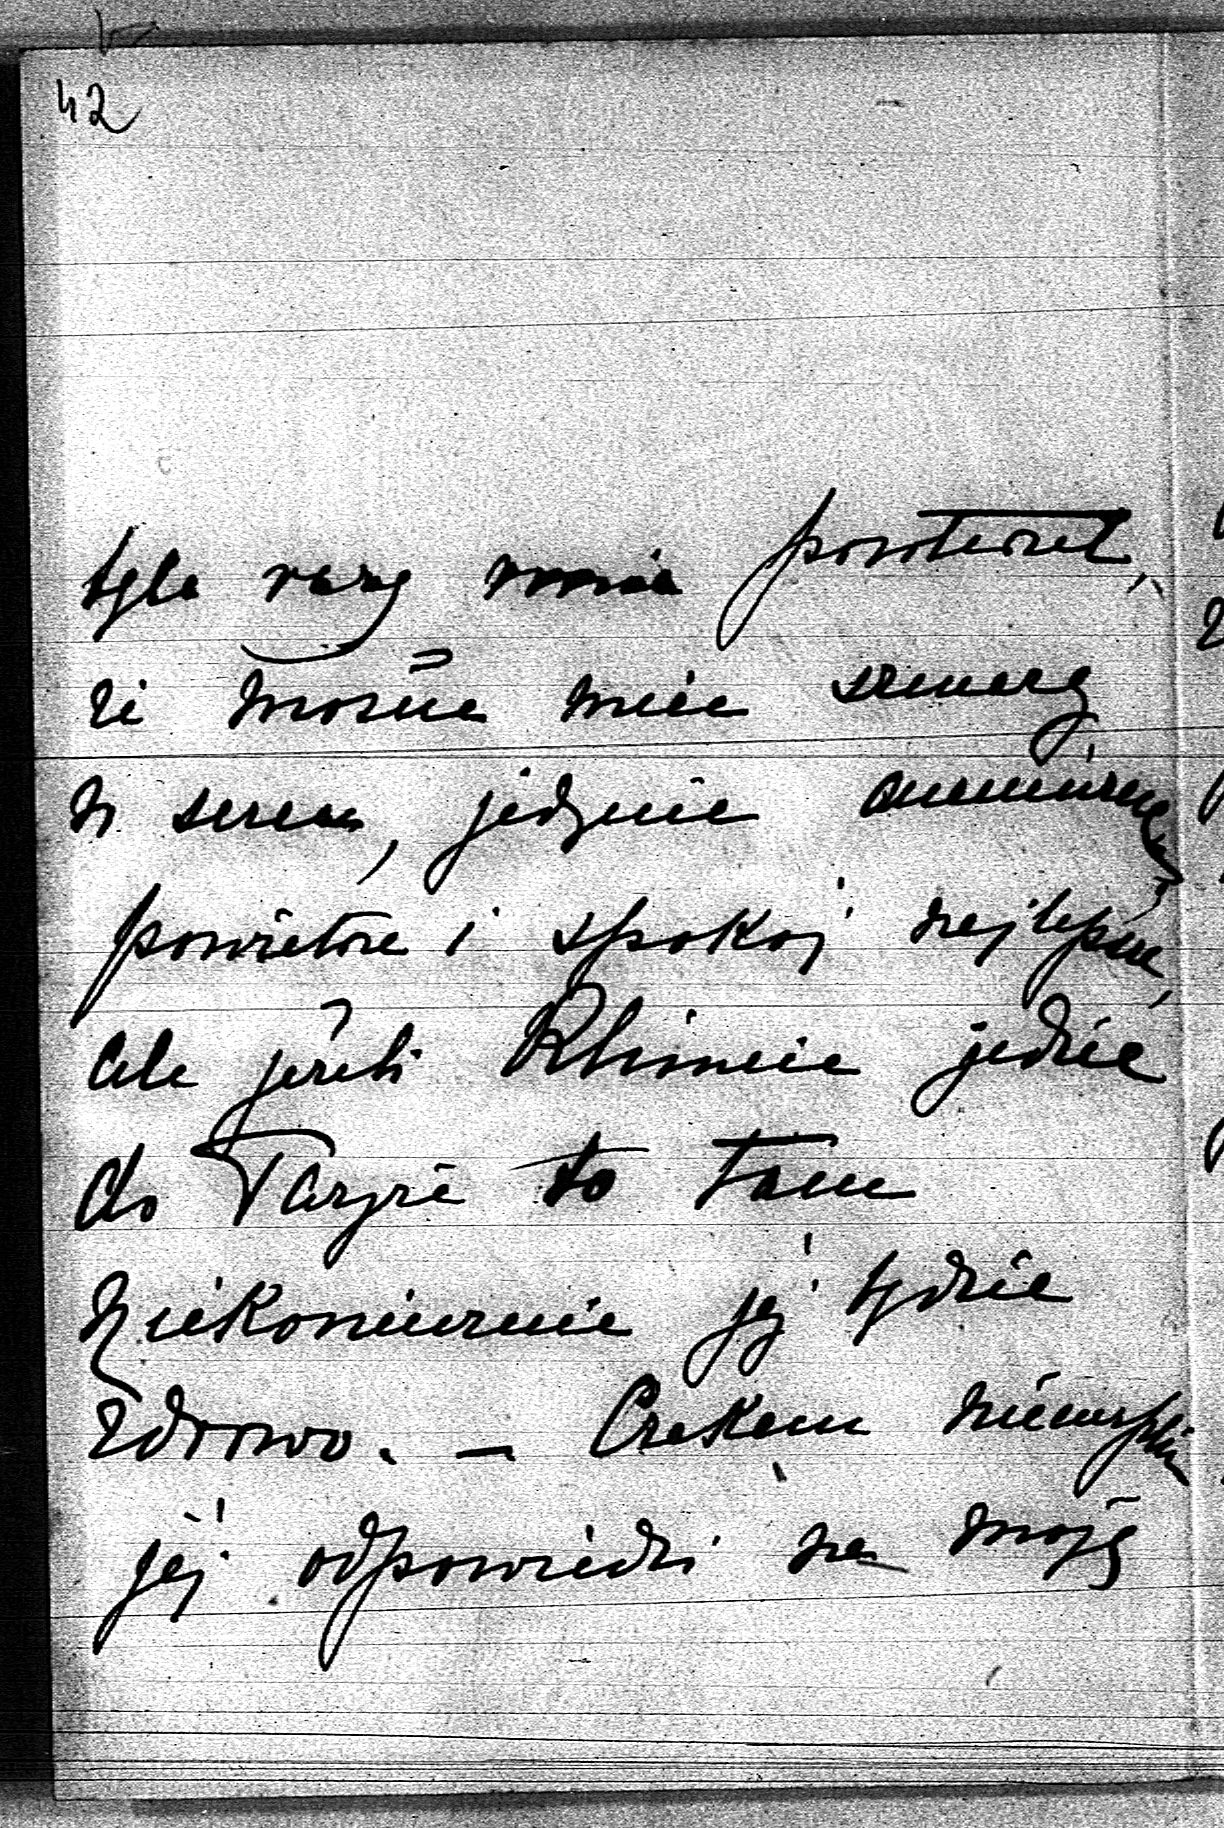 42
tyle razy mnie powtarzał,
że można mieć szmery
w sercu, jedynie
powietrze i spokój najlepsze,
ale jeżeli Klimcia jedzie
do Paryża to tam
niekoniecznie jej będzie
zdrowo. — Czekam niecierpliwie
jej odpowiedzi na moją